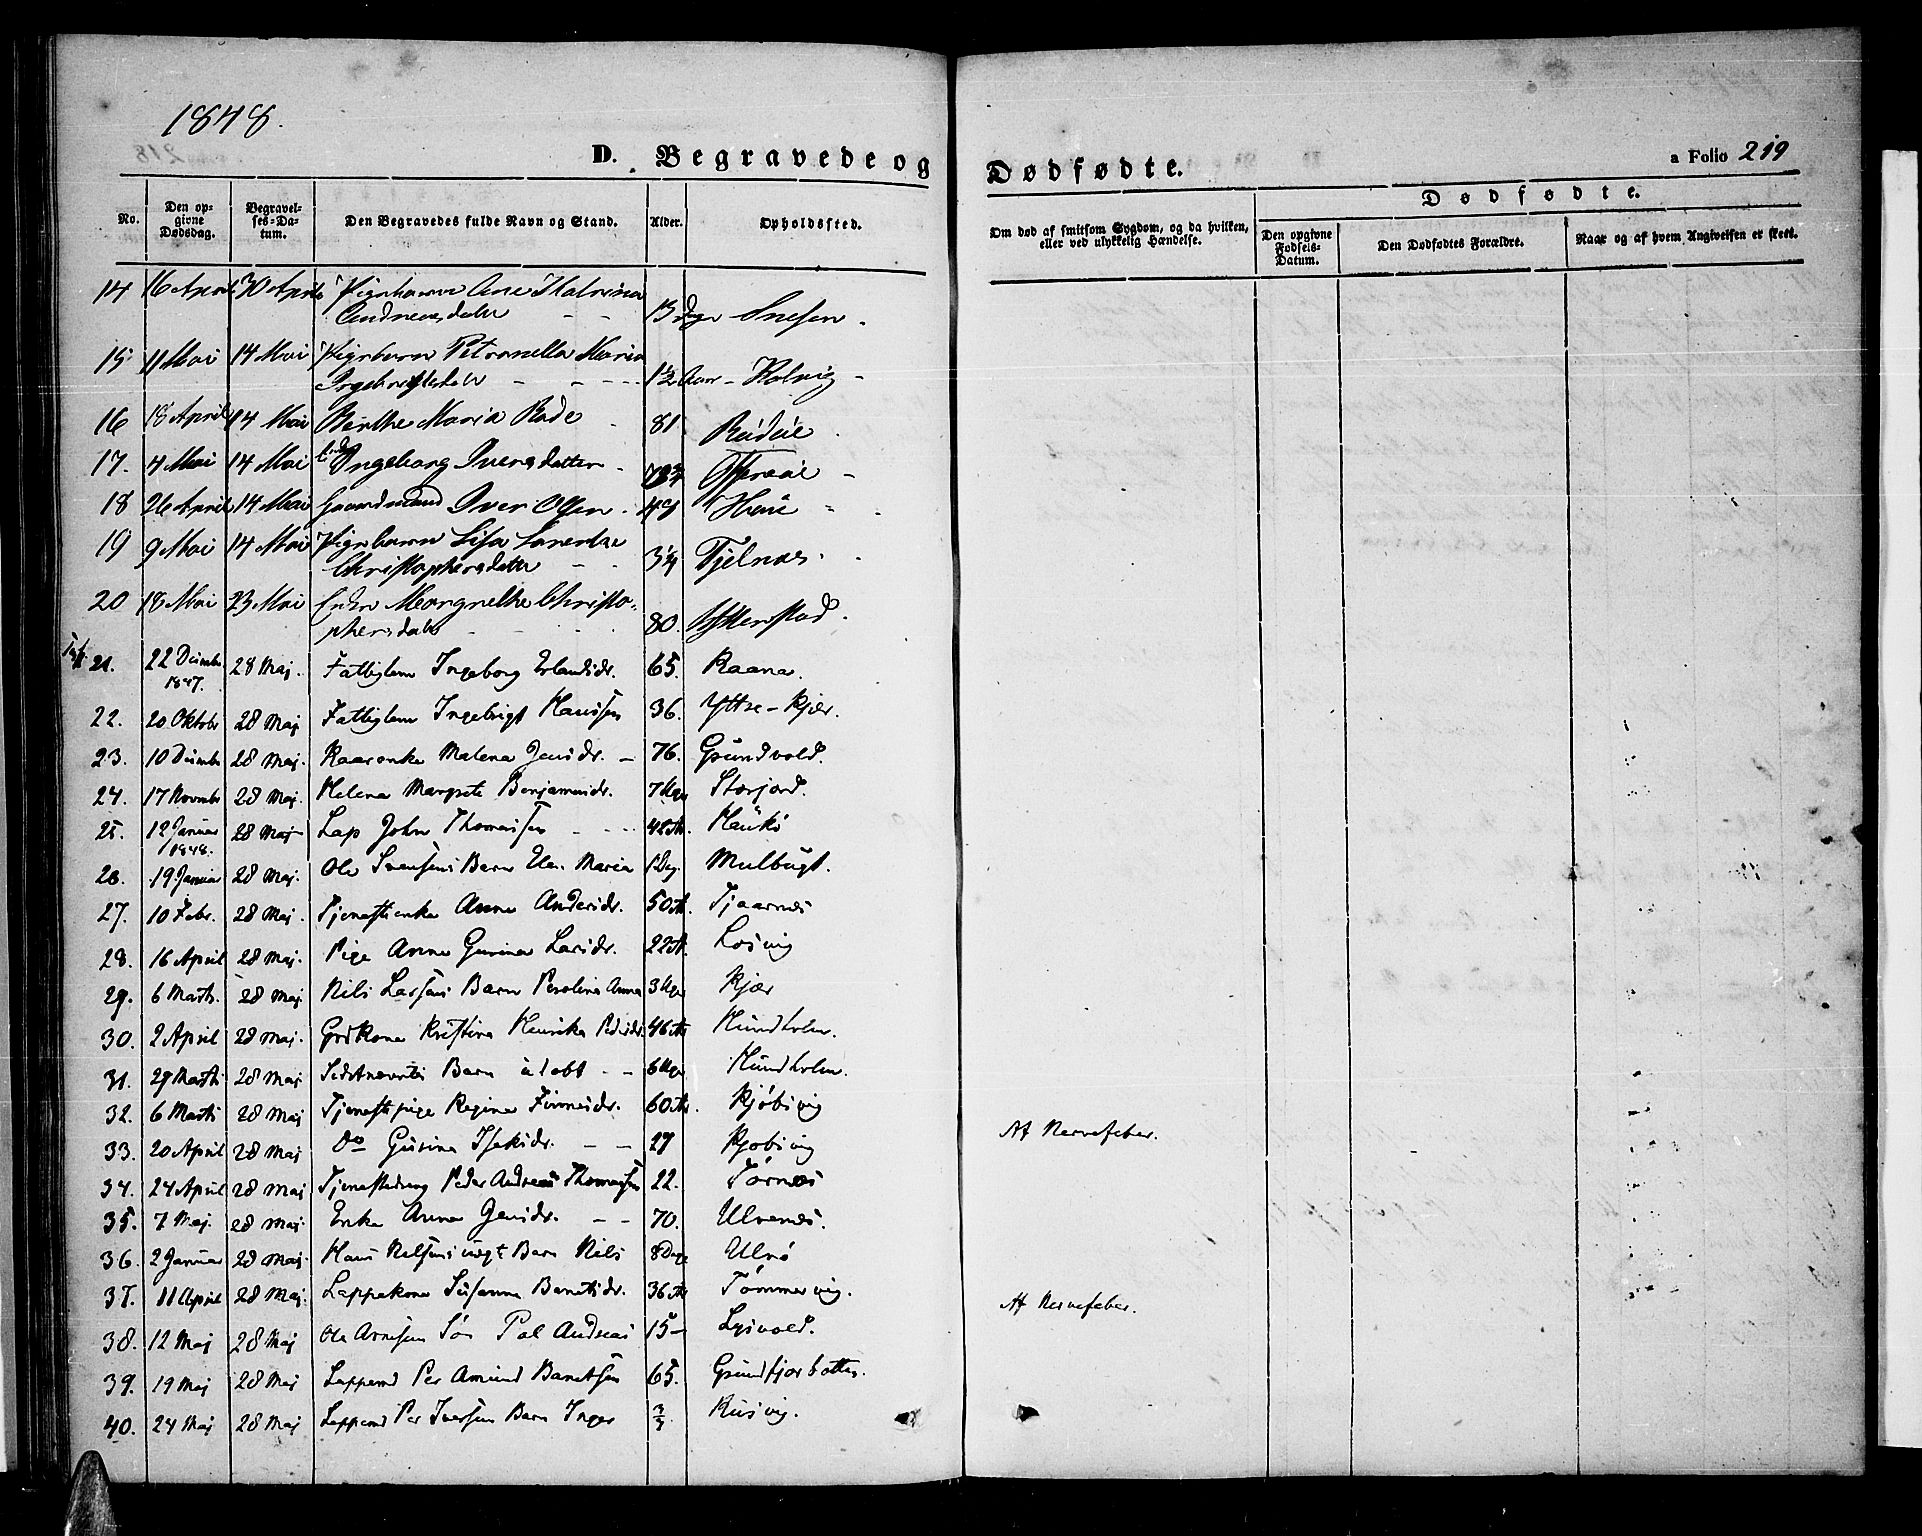 1848.
D. Begravede og Dødfødte.
a Folio 219
Dødfødte.
No. Den opgivne Dødsdag. Begravelses-Datum. Den Begravedes fulde Navn og Stand. Alder. Opholdssted. Om død af smitsom Sygdom, og da hvilken, eller ved ulykkelig Hændelse. Den opgivne Fødsels-Datum. Den Dødfødtes Forældre. Naar og af hvem Angivelsen er skeet.
14 16 April 30 April Pigebarn Ane Katrina
Andreasdatter - - 13 Dage
15 11 Mai 14 Mai Pigebarn Petronella Maria
Ingebrigtsdatter - - - 1½ Aar - Kolvig -
16 18 April 14 Mai Berthe Maria Rode 81 Rödöe
17. 4 Mai 14 Mai Ingeborg Iversdatter -
18 26 April 14 Mai Gaardmand Iver Olsen 49
19 9 Mai 14 Mai Pigebarn Lisa
Christophersdatter - - 3¼ Tjelnæs.
20 18 Mai 23 Mai Enke Margrethe Christo-
phersdatter - - 80. Ytterstad.
21. 22 Decembr 1847. 28 Maj. Fattiglem Ingeborg Erlandsdr. 65. Raana.
22. 20 Oktobr 28 Maj Fattiglem Ingebrigt Hansen 36. Yttre-Kjær.
23. 10 Decembr 28 Maj. Kaarenke Malena Jensdr. - 76. Grundvold.
24. 17 Novembr 28 Maj. Helena Margrete Benjaminsdr. 7 Uger Storjord.
25. 12 Januar 1848. 28 Maj Lap John Thomassen - - - 42 Aar. Haukø
26. 19 Januar 28 Maj. Ole Svensens Barn Elen Maria 1 Dag. Mulbugt.
27. 10 Febr. 28 Maj. Tjenestenke Anne Andersdr. 50 A. Tjaarnes
28. 16 April 28 Maj. Pige Anne Gurina Larsdr. 22 A. Losvig
29. 6 Marts. 28 Maj. Nils Larsens Barn Perolina Anna 3 Uger Kjær
30. 2 April 28 Maj. Grdkone Kristina Henrika Pedersdr. 46 A. Hundholm.
31. 29 Marts 28 Maj Barn udøbt - - 6 Uger Hundholm.
32. 6 Marts 28 Maj Tjenestepige Regina Finnesdr. 60 A. Kjøbsvig
33. 20 April 28 Maj Do Gurina Isaksdr. - - 27 Kjøbsvig Af Nervefeber.
34. 24 April 28 Maj Tjenestedreng Peder Andreas Thomassen 22. Tørnes
35. 7 Maj. 28 Maj. Enke Anna Jensdr. - - 70. Ulvenes.
36. 2 Januar 28 Maj. Hans Nilsens uægt Barn Nils 8 Dage Ulvø
37. 11 April 28 Maj. Lappekone Susanna Banetsdr. 36 A. Tømmervig.
38. 12 Maj 28 Maj Ole Arnesen Søn Pål Andreas 15 - Lysvold. Af Nervefeber.
39. 19 Maj 28 Maj Lappemd Per Amund Banetsen 65. Grundfjorbotten.
40. 24 Maj 28 Maj Lappemd Per Iversen Barn Inger ¾. Kusvig.